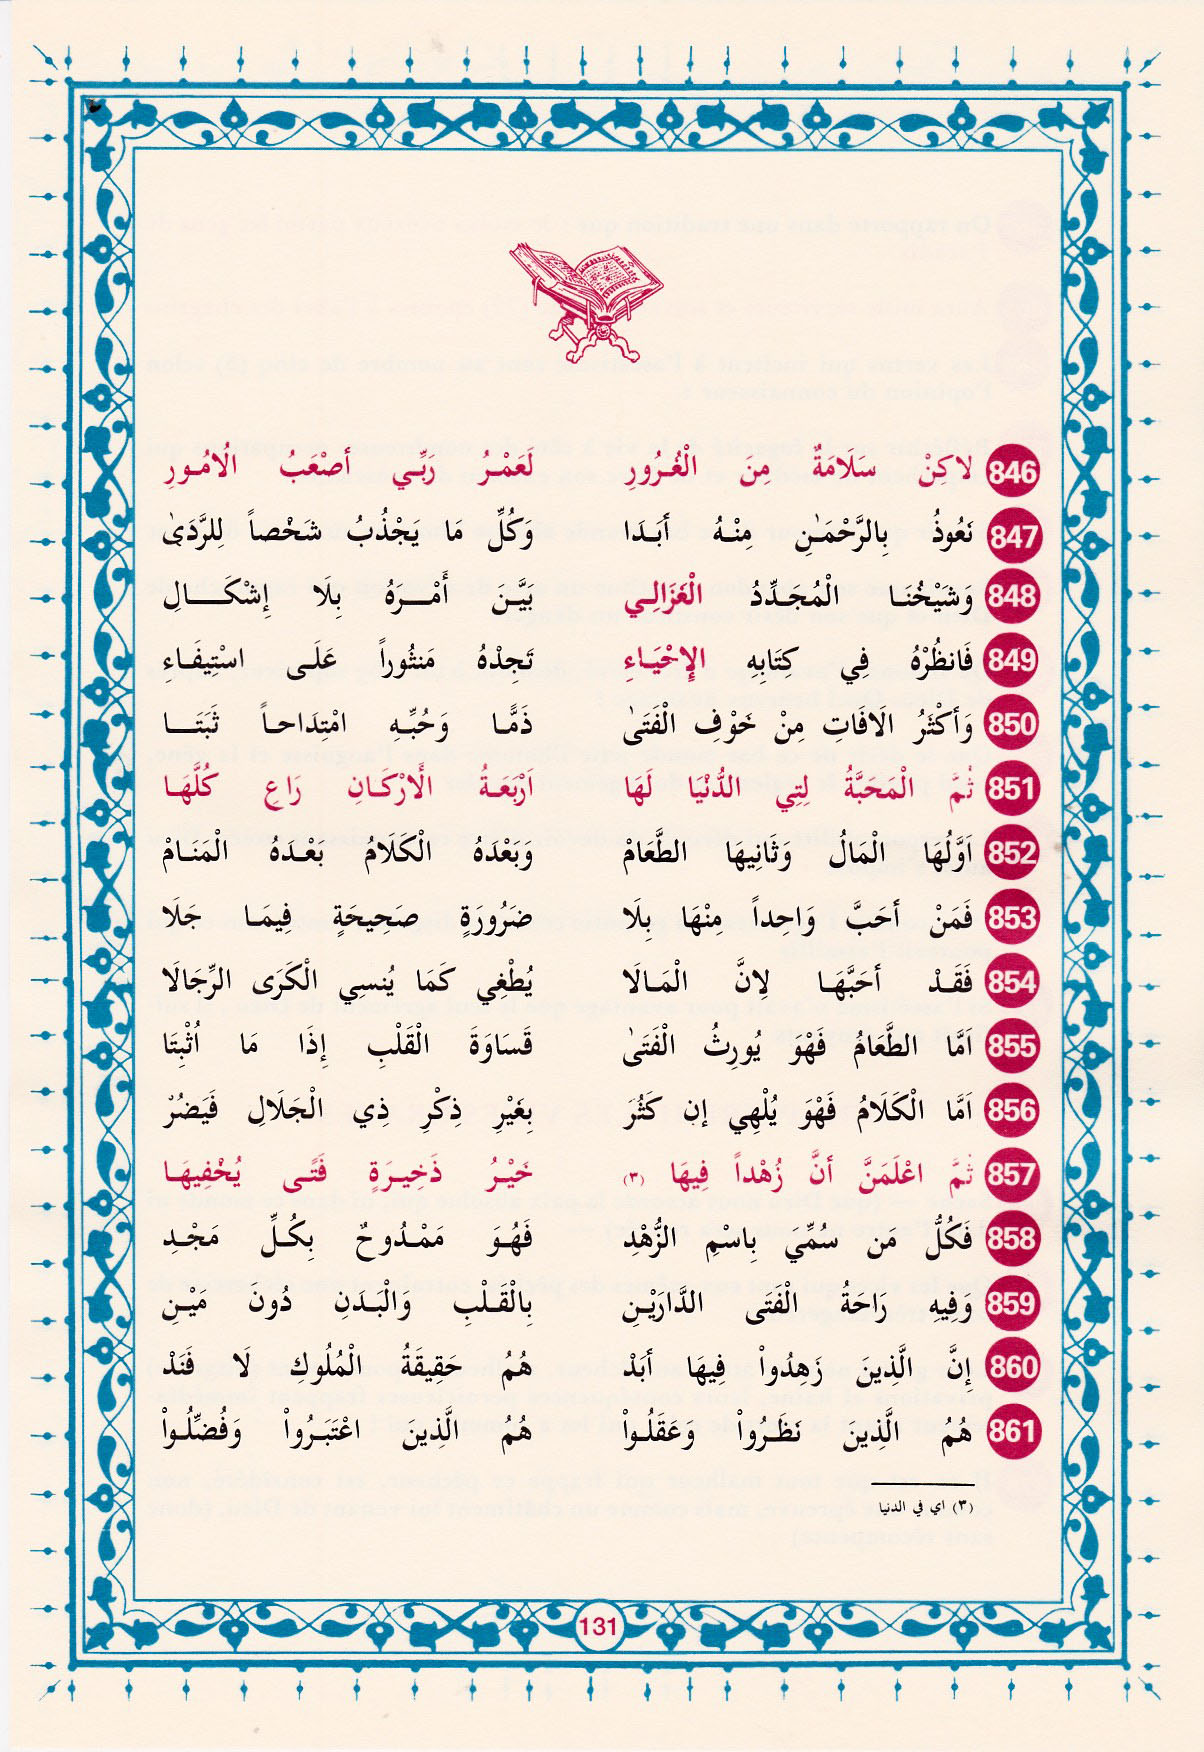 846 لاكِنْ سَلَامَةٌ مِنَ الْغُرُورِ لَعَمْرُ رَبِّي أصْعَبُ الُامُورِ
847 نَعُوذُ بِالرَّحْمَـٰنِ مِنْهُ أبَدَا وَكُلِّ مَا يَجْذُبُ شَخْصاً لِلرَّدَىٰ
848 وَشَيْخُنَا الْمُجَدِّدُ الْغَزَالِي بَيَّنَ أَمْرَهُ بِلَا إِشْكَالِ
849 فَانظُرْهُ فِي كِتَابِهِ الإِحْيَاءِ تَجِدْهُ مَنثُوراً عَلَى اسْتِيفَاءِ
850 وَأكْثَرُ الَافَاتِ مِنْ خَوْفِ الْفَتَىٰ ذَمًّا وَحُبِّهِ امْتِدَاحاً ثَبَتَا
851 ثُمَّ الْمَحَبَّةُ لِتِي الدُّنْيَا لَهَا اَرْبَعَةُ الَارْكَانِ رَاعِ كُلَّهَا
852 اَوَّلُهَا الْمَالُ وَثَانِيهَا الطَّعَامْ وَبَعْدَهُ الْكَلَامُ بَعْدَهُ الْمَنَامْ
853 فَمَنْ أحَبَّ وَاحِداً مِنْهَا بِلَا ضَرُورَةٍ صَحِيحَةٍ فِيمَا جَلَا
854 فَقَدْ أحَبَّهَا لِانَّ الْمَالَا يُطْغِي كَمَا يُنسِي الْكَرَى الرِّجَالَا
855 اَمَّا الطَّعَامُ فَهْوَ يُورِثُ الْفَتَىٰ قَسَاوَةَ الْقَلْبِ إِذَا مَا اُثْبِتَا
856 اَمَّا الْكَلَامُ فَهْوَ يُلْهِي إن كَثُرَ بِغَيْرِ ذِكْرِ ذِي الْجَلَالِ فَيَضُرْ
857 ثُمَّ اعْلَمَنَّ أنَّ زُهْداً فِيهَا (٣) خَيْرُ ذَخِيرَةٍ فَتًى يُخْفِيهَا
858 فَكُلُّ مَن سُمِّيَ بِاسْمِ الزُّهْدِ فَهُوَ مَمْدُوحٌ بِكُلِّ مَجْدِ
859 وَفِيهِ رَاحَةُ الْفَتَى الدَّارَيْنِ بِالْقَلْبِ وَالْبَدَنِ دُونَ مَيْنِ
860 إِنَّ الَّذِينَ زَهِدُواْ فِيهَا أبَدْ هُمُ حَقِيقَةُ الْمُلُوكِ لَا فَنَدْ
861 هُمُ الَّذِينَ نَظَرُواْ وَعَقَلُواْ هُمُ الَّذِينَ اعْتَبَرُواْ وَفُضِّلُواْ
(٣) اي في الدنيا
131